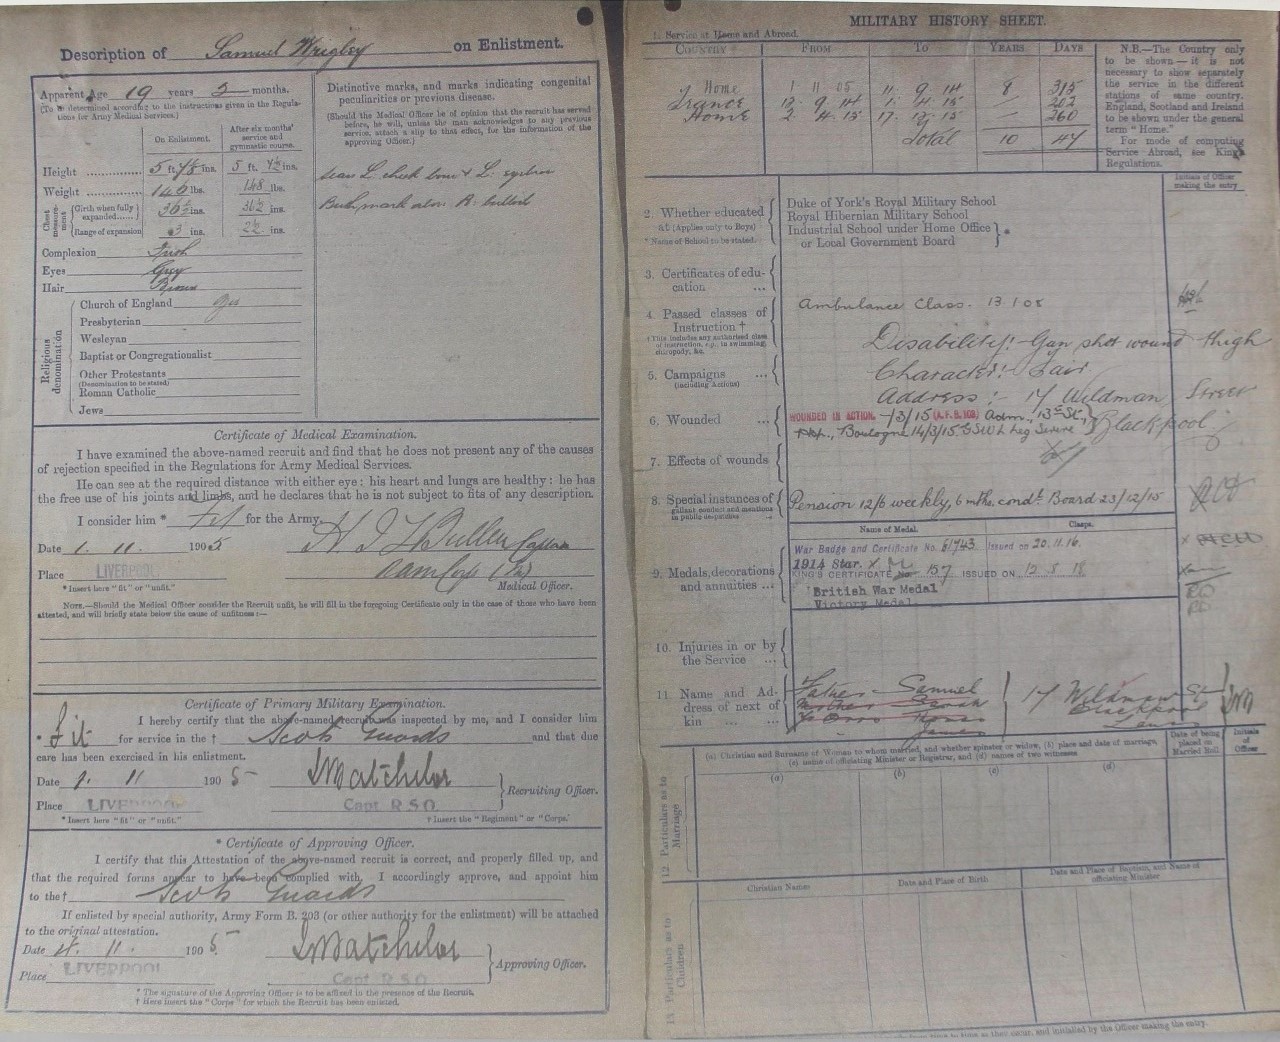 Description of Samuel Wrigley on Enlistment.
Apparent Age 19 years 2 months.
(To be determined according to the instructions given in the Regula-
tions for Army Medical Services.)
Distinctive marks, and marks indicating congenital
peculiarities or previous disease.
(Should the Medical Officer be of opinion that the recruit has served
before, he will, unless the man acknowledges to any previous
service, attach a slip to this effect, for the information of the
approving Officer.)
On Enlistment.
After six months'
service and
gymnastic course.
Height 5 ft. ins. 5 ft. 4½ ins.
Weight lbs. 148 lbs.
Chest measure-ment
Girth when fully expanded 36½ ins. 36½ ins.
Range of expansion 3 ins. 2½ ins.
scar L. cheek bone & L. eyebrow
Birth mark R. buttock
Complexion Fresh
Eyes Grey
Hair Brown
Religious denomination
Church of England Yes
Presbyterian
Wesleyan
Baptist or Congregationalist
Other Protestants
(Denomination to be stated)
Roman Catholic
Jews
Certificate of Medical Examination.
I have examined the above-named recruit and find that he does not present any of the causes
of rejection specified in the Regulations for Army Medical Services.
He can see at the required distance with either eye; his heart and lungs are healthy; he has
the free use of his joints and limbs, and he declares that he is not subject to fits of any description.
I consider him * Fit for the Army.
Date 1. 11. 1905
Place LIVERPOOL
Medical Officer.
* Insert here "fit" or "unfit."
NOTE.—Should the Medical Officer consider the Recruit unfit, he will fill in the foregoing Certificate only in the case of those who have been
attested, and will briefly state below the cause of unfitness:—
Certificate of Primary Military Examination.
I hereby certify that the above-named recruit was inspected by me, and I consider him
* fit for service in the † Scots Guards and that due
care has been exercised in his enlistment.
Date 1. 11 1905 Batchelor
Recruiting Officer.
Place LIVERPOOL Capt R.S.O.
* Insert here "fit" or "unfit." † Insert the "Regiment" or "Corps."
* Certificate of Approving Officer.
I certify that this Attestation of the above-named recruit is correct, and properly filled up, and
that the required forms appear to have been complied with. I accordingly approve, and appoint him
to the † Scots Guards
If enlisted by special authority, Army Form B. 203 (or other authority for the enlistment) will be attached
to the original attestation.
Date 11. 1905. Batchelor
Approving Officer.
Place LIVERPOOL Capt R.S.O.
* The signature of the Approving Officer is to be affixed in the presence of the Recruit.
† Here insert the "Corps" for which the Recruit has been enlisted.
MILITARY HISTORY SHEET.
1. Service at Home and Abroad.
COUNTRY FROM TO YEARS DAYS
Home 1 11 05 11. 9. 14 8 315
France 12. 9. 14 1. 4. 15 202
Home 2. 4. 15 17. 12. 15 — 260
Total 10 47
N.B.—The Country only
to be shown—it is not
necessary to show separately
the service in the different
stations of same country.
England, Scotland and Ireland
to be shown under the general
term "Home."
For mode of computing
Service Abroad, see King's
Regulations.
Initials of Officer
making the entry
2. Whether educated
at (Applies only to Boys)
* Name of School to be stated.
Duke of York's Royal Military School
Royal Hibernian Military School
Industrial School under Home Office
or Local Government Board *
3. Certificates of edu-
cation ...
4. Passed classes of
Instruction †
† This includes any authorised class
of instruction, e.g., in swimming,
chiropody, &c.
Ambulance Class. 13.1.08
Disability:- Gun shot wound thigh
Character:- Fair
Address:- 17 Wildman Street
Blackpool
5. Campaigns ...
(including Actions)
6. Wounded ...
WOUNDED IN ACTION. -/3/15 (A.F.B.103) Adm., 13th St.,
Hosp., Boulogne 14/3/15 GSW L Leg Severe
7. Effects of wounds
8. Special instances of
gallant conduct and mentions
in public despatches
Pension 12/6 weekly, 6 mths. condl. Board 23/12/15
9. Medals, decorations
and annuities ...
Name of Medal. Clasps.
War Badge and Certificate No. 61743 Issued on 20.11.16.
1914 Star.
KING'S CERTIFICATE No. 157 ISSUED ON 12 8 18
British War Medal
Victory Medal
10. Injuries in or by
the Service ...
11. Name and Ad-
dress of next of
kin ...
Father Samuel
Mother Sarah
Bros Thomas
James
17 Wildman St
Blackpool
Lancs
(a) Christian and Surname of Woman to whom married, and whether spinster or widow, (b) place and date of marriage,
(c) name of officiating Minister or Registrar, and (d) names of two witnesses
Date of being
placed on
Married Roll
Initials
of
Officer
(a) (b) (c) (d)
12. Particulars as to
Marriage
Christian Names
Date and Place of Birth
Date and Place of Baptism, and Name of
officiating Minister
13 Particulars as to
Children
from time to time as they occur, and initialled by the Officer making the entry.